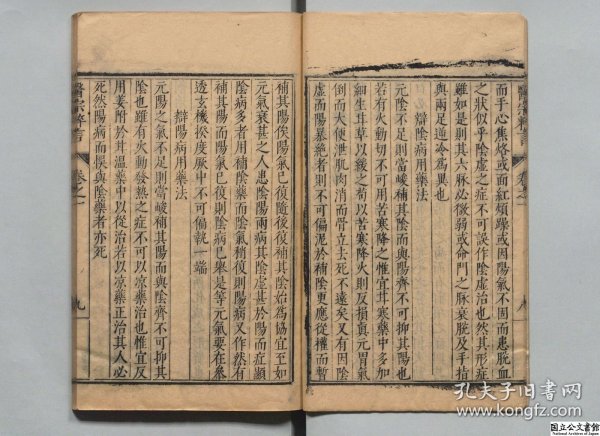 而手心焦烙或面紅煩躁或因陽氣不固而患脫血
之狀似乎陰虛之症不可誤作陰虛治也然其形症
雖如是則其六脉必微弱或命門之脉衰脫及手指
與兩足逆冷為異也
辯陰病用藥法
元陰不足則當峻補其陰而與陽齊不可抑其陽也
若有火動切不可用苦寒降之惟宜甘寒藥中多加
細生甘草以緩之苟以苦寒降火則反損真元胃氣
倒而大便泄肌肉消而骨立去死不遠矣又有因陰
虛而陽暴絶者則不可偏泥於補陰更應從權而暫
補其陽俟陽氣已復隨後復補其陰始為協宜至如
元氣衰甚之人患陰陽兩病其陰虛甚於陽而症顯
陰病多者用補陰藥而陰氣稍復則陽病又作然有
補其陽而陽氣已復則陰病已舉是等元氣要在參
透玄機揆度厥中不可偏執一端
辯陽病用藥法
元陽之氣不足則當峻補其陽而與陰齊不可抑其
陰也雖有火動發熱之症不可以凉藥治也惟宜反
用姜附於甘溫藥中以從治若以凉藥正治其人必
死然陽病而誤與陰藥者亦死
醫宗粹言
卷之一
九
孔夫子旧书网
www.kongfz.com
国立公文書館
National Archives of Japan